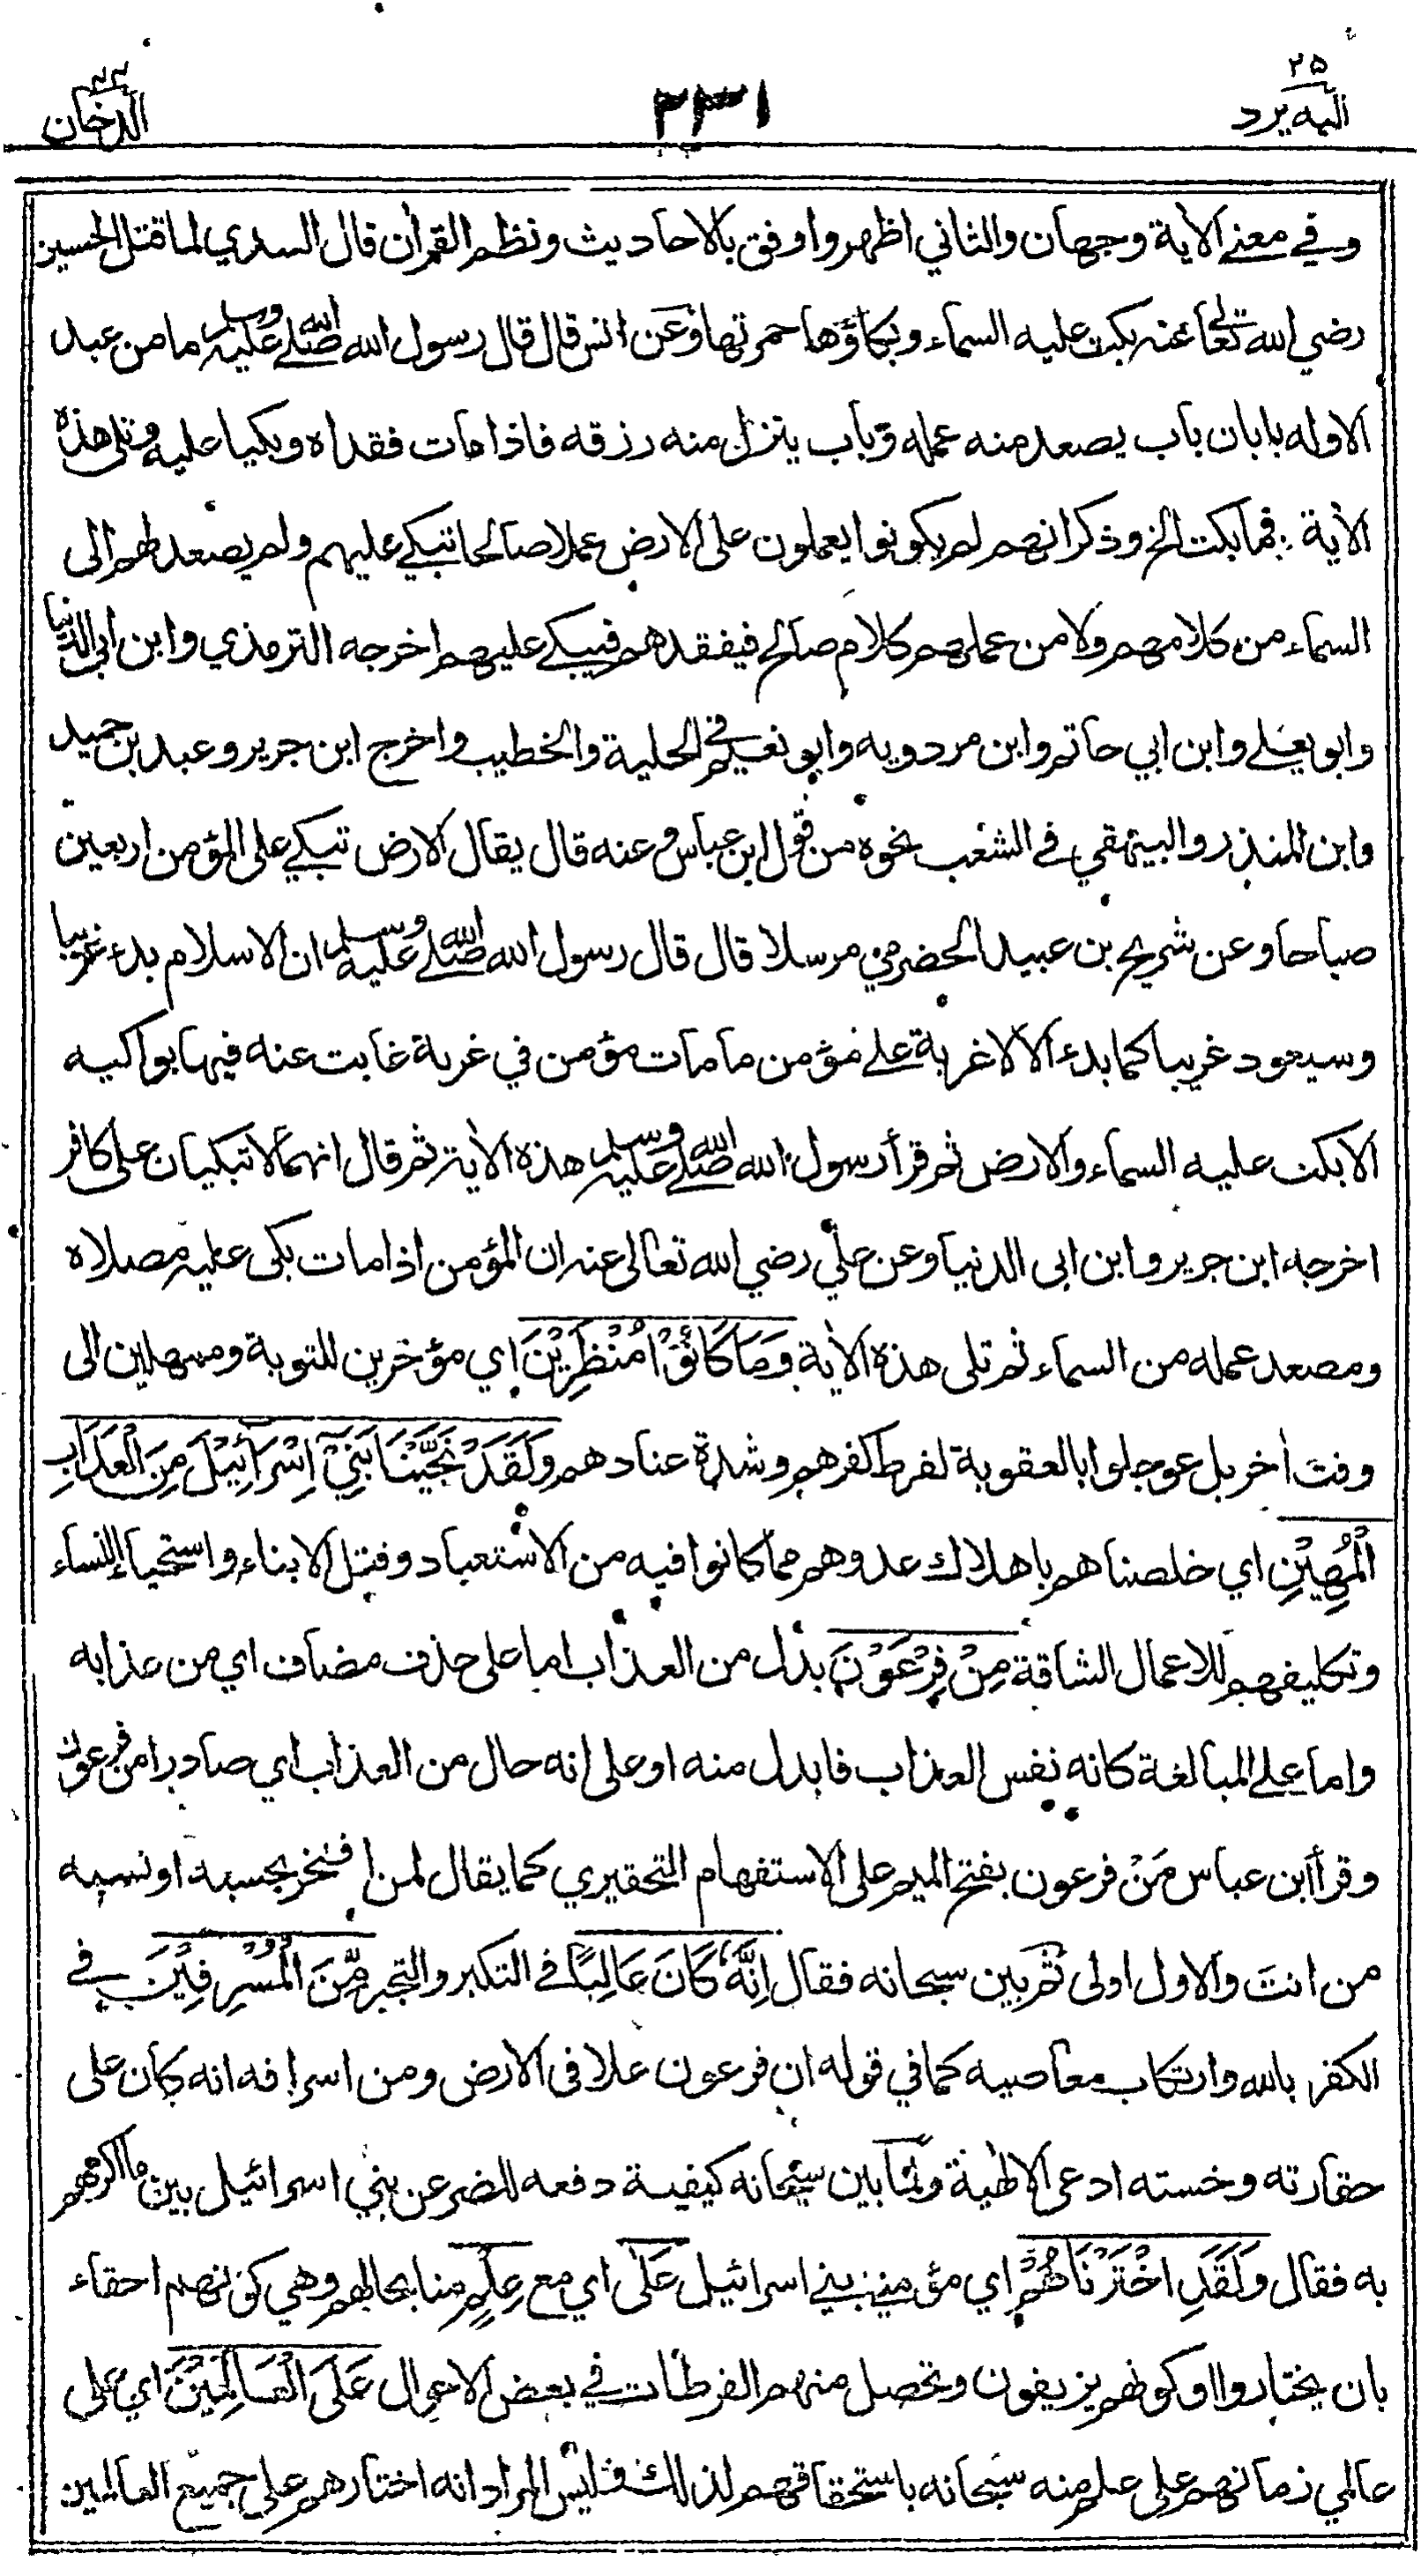 ٢٥
اليه يرد
٣٣١
٤٤
الدخان
وفي معنى الاٰية وجهان والثاني اظهر واوفق بالاحاديث ونظم القراٰن قال السدي لما قتل الحسين
رضي الله تعالى عنه بكت عليه السماء وبكاؤها حمرتها وعن انس قال قال رسول الله صلى الله عليه وسلم ما من عبد
الا وله بابان باب يصعد منه عمله وباب ينزل منه رزقه فاذا مات فقداه وبكيا عليه وتلى هذه
الاٰية فما بكت الخ وذكر انهم لم يكونوا يعملون على الارض عملا صالحا تبكي عليهم ولم يصعد لهم الى
السماء من كلامهم ولا من عملهم كلام صالح فيفقدهم فيبكي عليهم اخرجه الترمذي وابن ابي الدنيا
وابو يعلى وابن ابي حاتم وابن مردويه وابو نعيم في الحلية والخطيب واخرج ابن جرير وعبد بن حميد
وابن المنذر والبيهقي في الشعب نحوه من قول ابن عباس وعنه قال يقال الارض تبكي على المؤمن اربعين
صباحا وعن شريح بن عبيد الحضرمي مرسلا قال قال رسول الله صلى الله عليه وسلم ان الاسلام بدء غريبا
وسيعود غريبا كما بدء الا لا غربة على مؤمن ما مات مؤمن في غربة غابت عنه فيها بواكيه
الا بكت عليه السماء والارض ثم قرأ رسول الله صلى الله عليه وسلم هذه الاٰية ثم قال انهما لا تبكيان على كافر
اخرجه ابن جرير وابن ابى الدنيا وعن علي رضي الله تعالى عنه ان المؤمن اذا مات بكى عليه مصلاه
ومصعد عمله من السماء ثم تلى هذه الاٰية وَمَا كَانُوْا مُنْظَرِيْنَ اي مؤخرين للتوبة وممهلين الى
وقت اٰخر بل عوجلوا بالعقوبة لفرط كفرهم وشدة عنادهم وَلَقَدْ نَجَّيْنَا بَنِيْٓ اِسْرَآئِيْلَ مِنَ الْعَذَابِ
الْمُهِيْنِ اي خلصناهم باهلاك عدوهم مما كانوا فيه من الاستعباد وقتل الابناء واستحياء النساء
وتكليفهم للاعمال الشاقة مِنْ فِرْعَوْنَ بدل من العذاب اما على حذف مضاف اي من عذابه
واما على المبالغة كانه نفس العذاب فابدل منه او على انه حال من العذاب اي صادرا من فرعون
وقرأ ابن عباس مَنْ فرعون بفتح الميم على الاستفهام التحقيري كما يقال لمن افتخر بحسبه او نسبه
من انتَ والاول اولى ثم بين سبحانه فقال اِنَّهٗ كَانَ عَالِيًا في التكبر والتجبر مِّنَ الْمُسْرِفِيْنَ في
الكفر بالله وارتكاب معاصيه كما في قوله ان فرعون علا فى الارض ومن اسرافه انه كان على
حقارته وخسته ادعى الالٰهية ولما بين سبحانه كيفية دفعه للضر عن بني اسرائيل بين ما اكرمهم
به فقال وَلَقَدِ اخْتَرْنَاهُمْ اي مؤمني بني اسرائيل عَلٰى اي مع عِلْمٍ منا بحالهم وهي كونهم احقاء
بان يختاروا او كونهم يزيغون وتحصل منهم الفرطات في بعض الاحوال عَلَى الْعَالَمِيْنَ اي على
عالمي زمانهم على علم منه سبحانه باستحقاقهم لذلك فليس المراد انه اختارهم على جميع العالمين